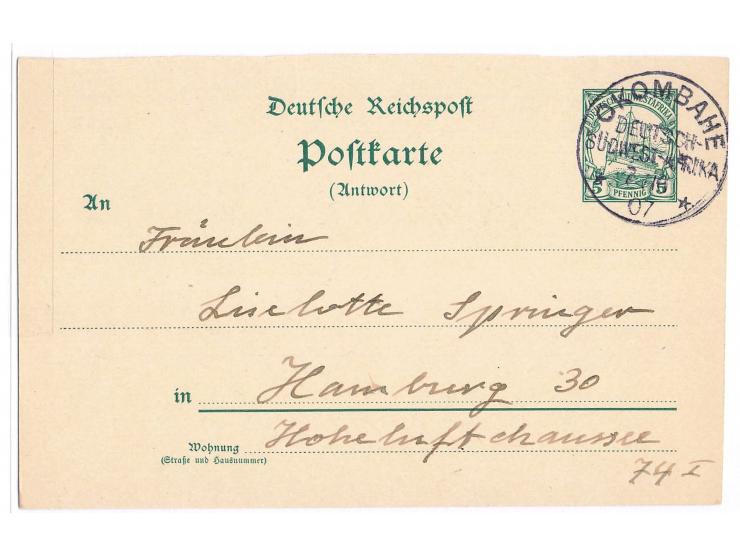 Deutsche Reichspost
Postkarte
(Antwort)
DEUTSCH-SÜDWESTAFRIKA
5 5
PFENNIG
OKOMBAHE
DEUTSCH-
SÜDWESTAFRIKA
07
An
Fräulein
Liselotte Springer
in Hamburg 30
Wohnung
(Straße und Hausnummer)
Hoheluftchaussee
74 I